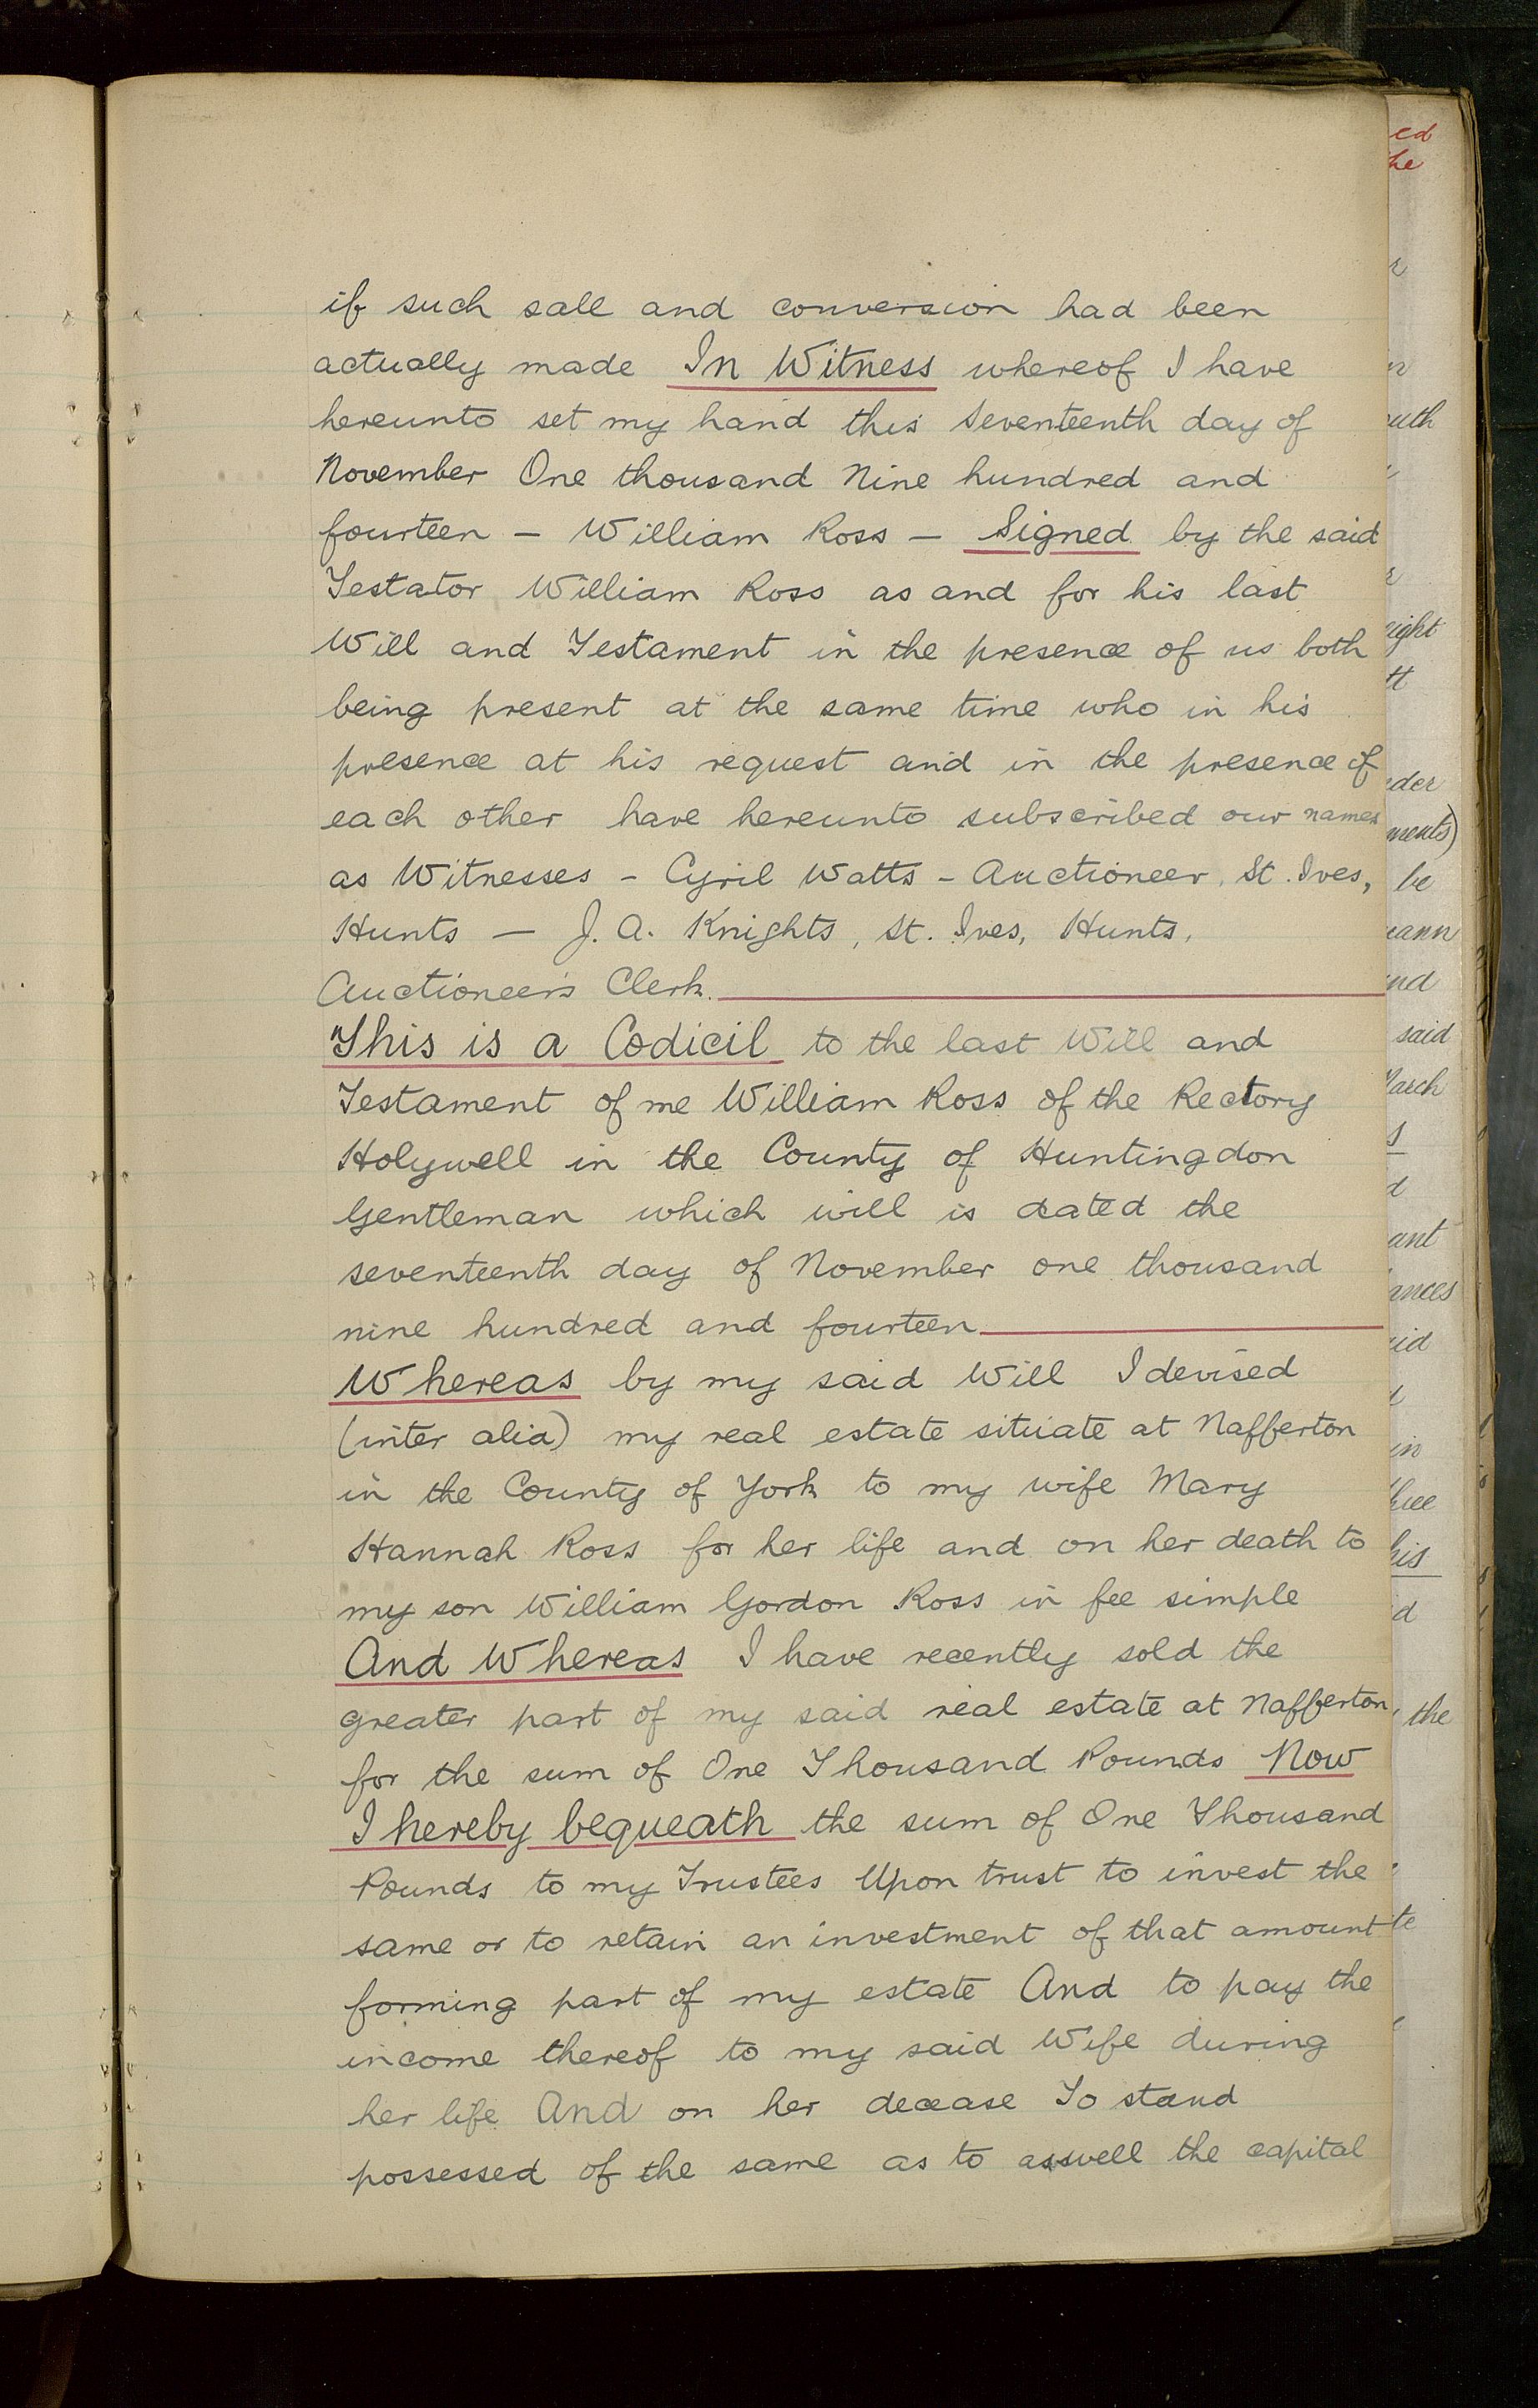 if such sale and conversion had been
actually made In Witness whereof I have
hereunto set my hand this seventeenth day of
November One thousand Nine hundred and
fourteen — William Ross — Signed by the said
Testator William Ross as and for his last
Will and Testament in the presence of us both
being present at the same time who in his
presence at his request and in the presence of
each other have hereunto subscribed our names
as Witnesses - Cyril Watts - Auctioneer, St. Ives,
Hunts — J. A. Knights, St. Ives, Hunts,
Auctioneer's Clerk.
This is a Codicil to the last Will and
Testament of me William Ross of the Rectory
Holywell in the County of Huntingdon
Gentleman which will is dated the
seventeenth day of November one thousand
nine hundred and fourteen
Whereas by my said Will I devised
(inter alia) my real estate situate at Nafferton
in the County of York to my wife Mary
Hannah Ross for her life and on her death to
my son William Gordon Ross in fee simple
And Whereas I have recently sold the
greater part of my said real estate at Nafferton
for the sum of One Thousand Pounds Now
I hereby bequeath the sum of One Thousand
Pounds to my Trustees Upon trust to invest the
same or to retain an investment of that amount
forming part of my estate And to pay the
income thereof to my said Wife during
her life And on her decease To stand
possessed of the same as to aswell the capital